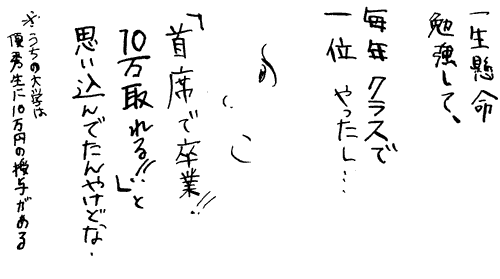 一生懸命
勉強して、
毎年クラスで
一位やったし…
「首席で卒業!!
10万取れる!!」と
思い込んでたんやけどな.
※うちの大学は
優秀生に10万円の授与がある